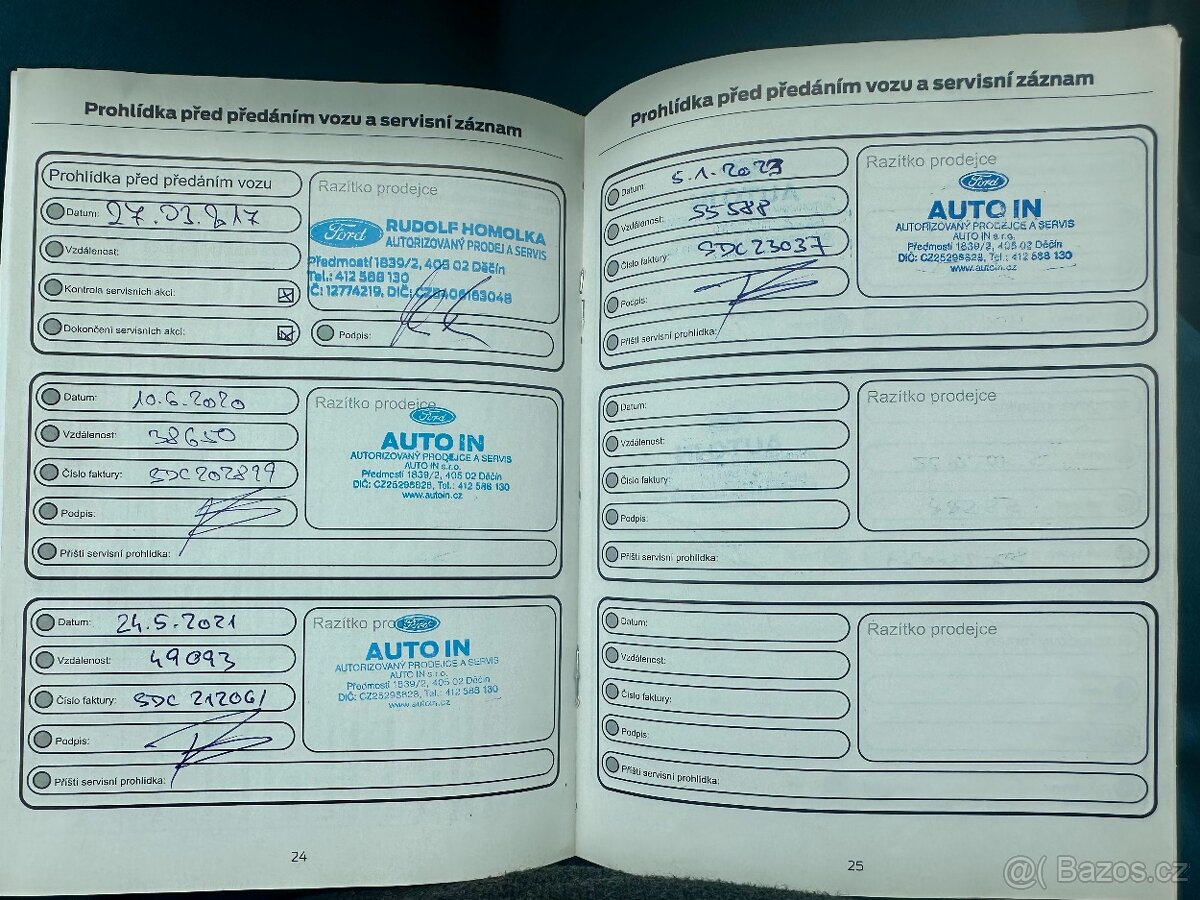 Prohlídka před předáním vozu a servisní záznam
Prohlídka před předáním vozu
Datum: 27.03.2017
Vzdálenost:
Kontrola servisních akcí:
Dokončení servisních akcí:
Razítko prodejce
Ford
RUDOLF HOMOLKA
AUTORIZOVANÝ PRODEJ A SERVIS
Předmostí 1839/2, 405 02 Děčín
Tel.: 412 588 130
Č: 12774219, DIČ: CZ5406163048
Podpis:
Datum: 10.6.2020
Vzdálenost: 38650
Číslo faktury: SDC202899
Podpis:
Příští servisní prohlídka:
Razítko prodejce
Ford
AUTO IN
AUTORIZOVANÝ PRODEJCE A SERVIS
AUTO IN s.r.o.
Předmostí 1839/2, 405 02 Děčín
DIČ: CZ25298828, Tel.: 412 588 130
www.autoin.cz
Datum: 24.5.2021
Vzdálenost: 49093
Číslo faktury: SDC 212061
Podpis:
Příští servisní prohlídka:
Razítko pro
Ford
AUTO IN
AUTORIZOVANÝ PRODEJCE A SERVIS
AUTO IN s.r.o.
Předmostí 1839/2, 405 02 Děčín
DIČ: CZ25298828, Tel.: 412 588 130
www.autoin.cz
24
Prohlídka před předáním vozu a servisní záznam
Datum: 5.1.2023
Vzdálenost: 55588
Číslo faktury: SDC23037
Podpis:
Příští servisní prohlídka:
Razítko prodejce
Ford
AUTO IN
AUTORIZOVANÝ PRODEJCE A SERVIS
AUTO IN s.r.o.
Předmostí 1839/2, 405 02 Děčín
DIČ: CZ25298828, Tel.: 412 588 130
www.autoin.cz
Datum:
Vzdálenost:
Číslo faktury:
Podpis:
Příští servisní prohlídka:
Razítko prodejce
Datum:
Vzdálenost:
Číslo faktury:
Podpis:
Příští servisní prohlídka:
Razítko prodejce
25
@( Bazos.cz